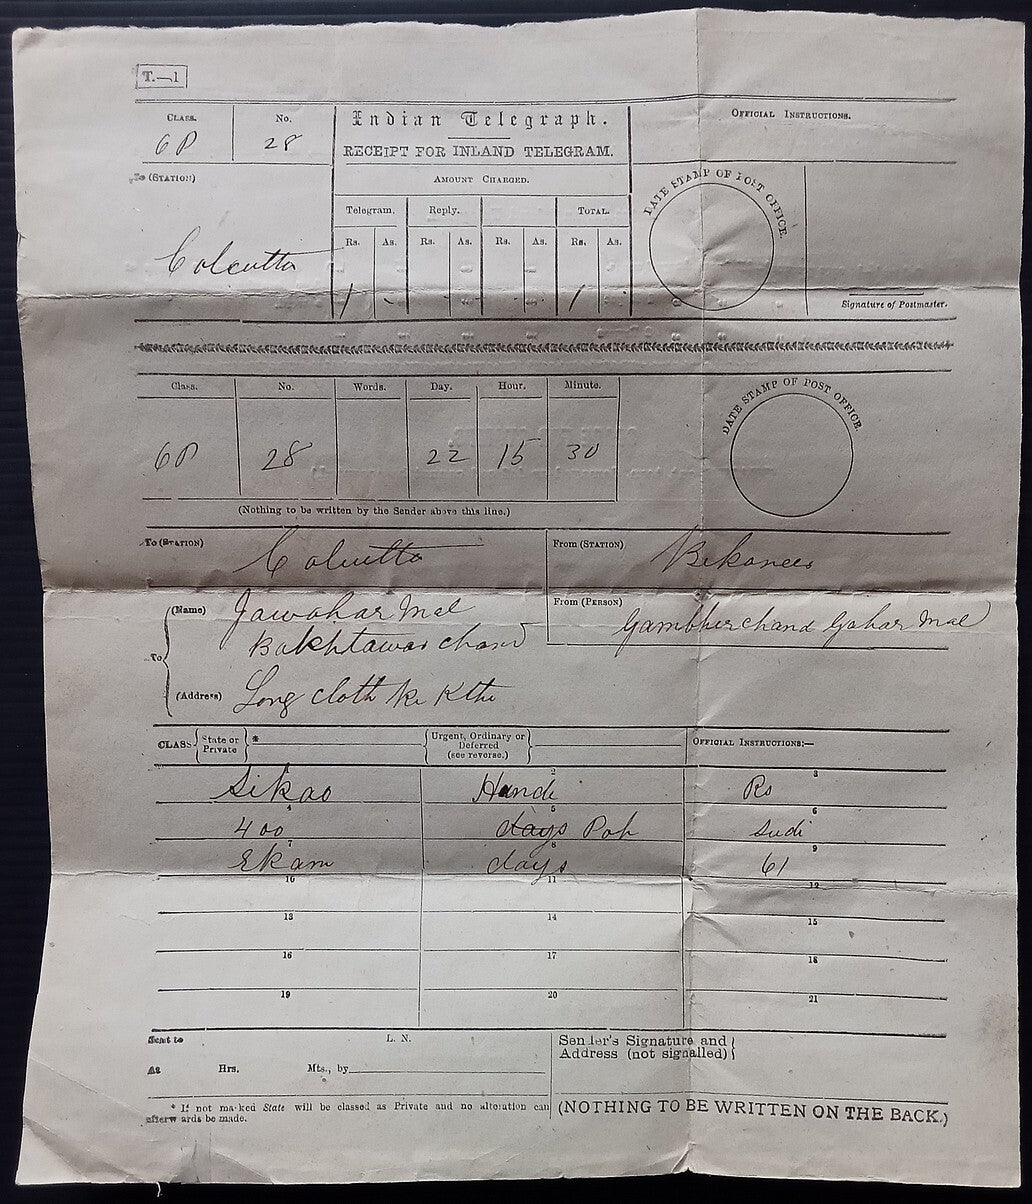 T.—1
CLASS.
No.
Indian Telegraph.
OFFICIAL INSTRUCTIONS.
6P
28
RECEIPT FOR INLAND TELEGRAM.
To (STATION)
AMOUNT CHARGED.
DATE STAMP OF POST OFFICE.
Telegram.
Reply.
TOTAL.
Rs.
As.
Rs.
As.
Rs.
As.
Rs.
As.
Calcutta
1 - - - - - 1 -
Signature of Postmaster.
Class.
No.
Words.
Day.
Hour.
Minute.
DATE STAMP OF POST OFFICE.
6P
28
22
15
30
(Nothing to be written by the Sender above this line.)
To (STATION)
Calcutta
From (STATION)
Bikaneer
To
(Name)
Jawahar Mal
From (PERSON)
Gambhirchand Gohar Mal
Bakhtawar chand
(Address)
Long cloth ke
CLASS
State or Private
*
Urgent, Ordinary or Deferred (see reverse.)
OFFICIAL INSTRUCTIONS:—
2
3
Sikao
Hundi
Rs
4
5
6
400
days Poh
Sudi
7
8
9
Ekam
days
61
10
11
12
13
14
15
16
17
18
19
20
21
Sent to
L. N.
Sender's Signature and
Address (not signalled)
At
Hrs.
Mts., by
* If not marked State will be classed as Private and no alteration can
afterwards be made.
(NOTHING TO BE WRITTEN ON THE BACK.)